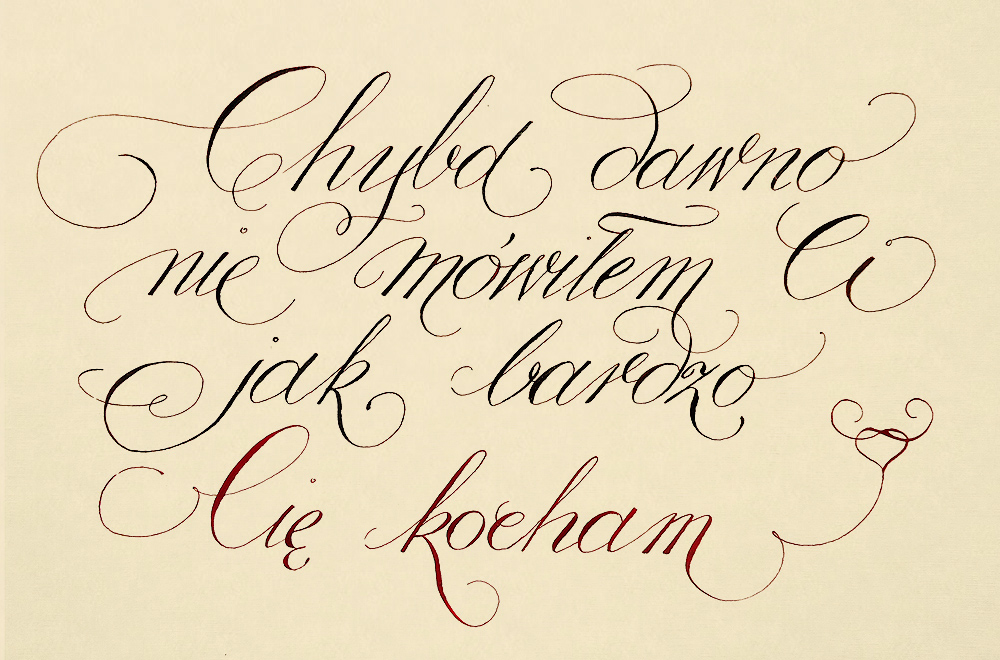 Chyba dawno
nie mówiłem Ci
jak bardzo
Cię kocham